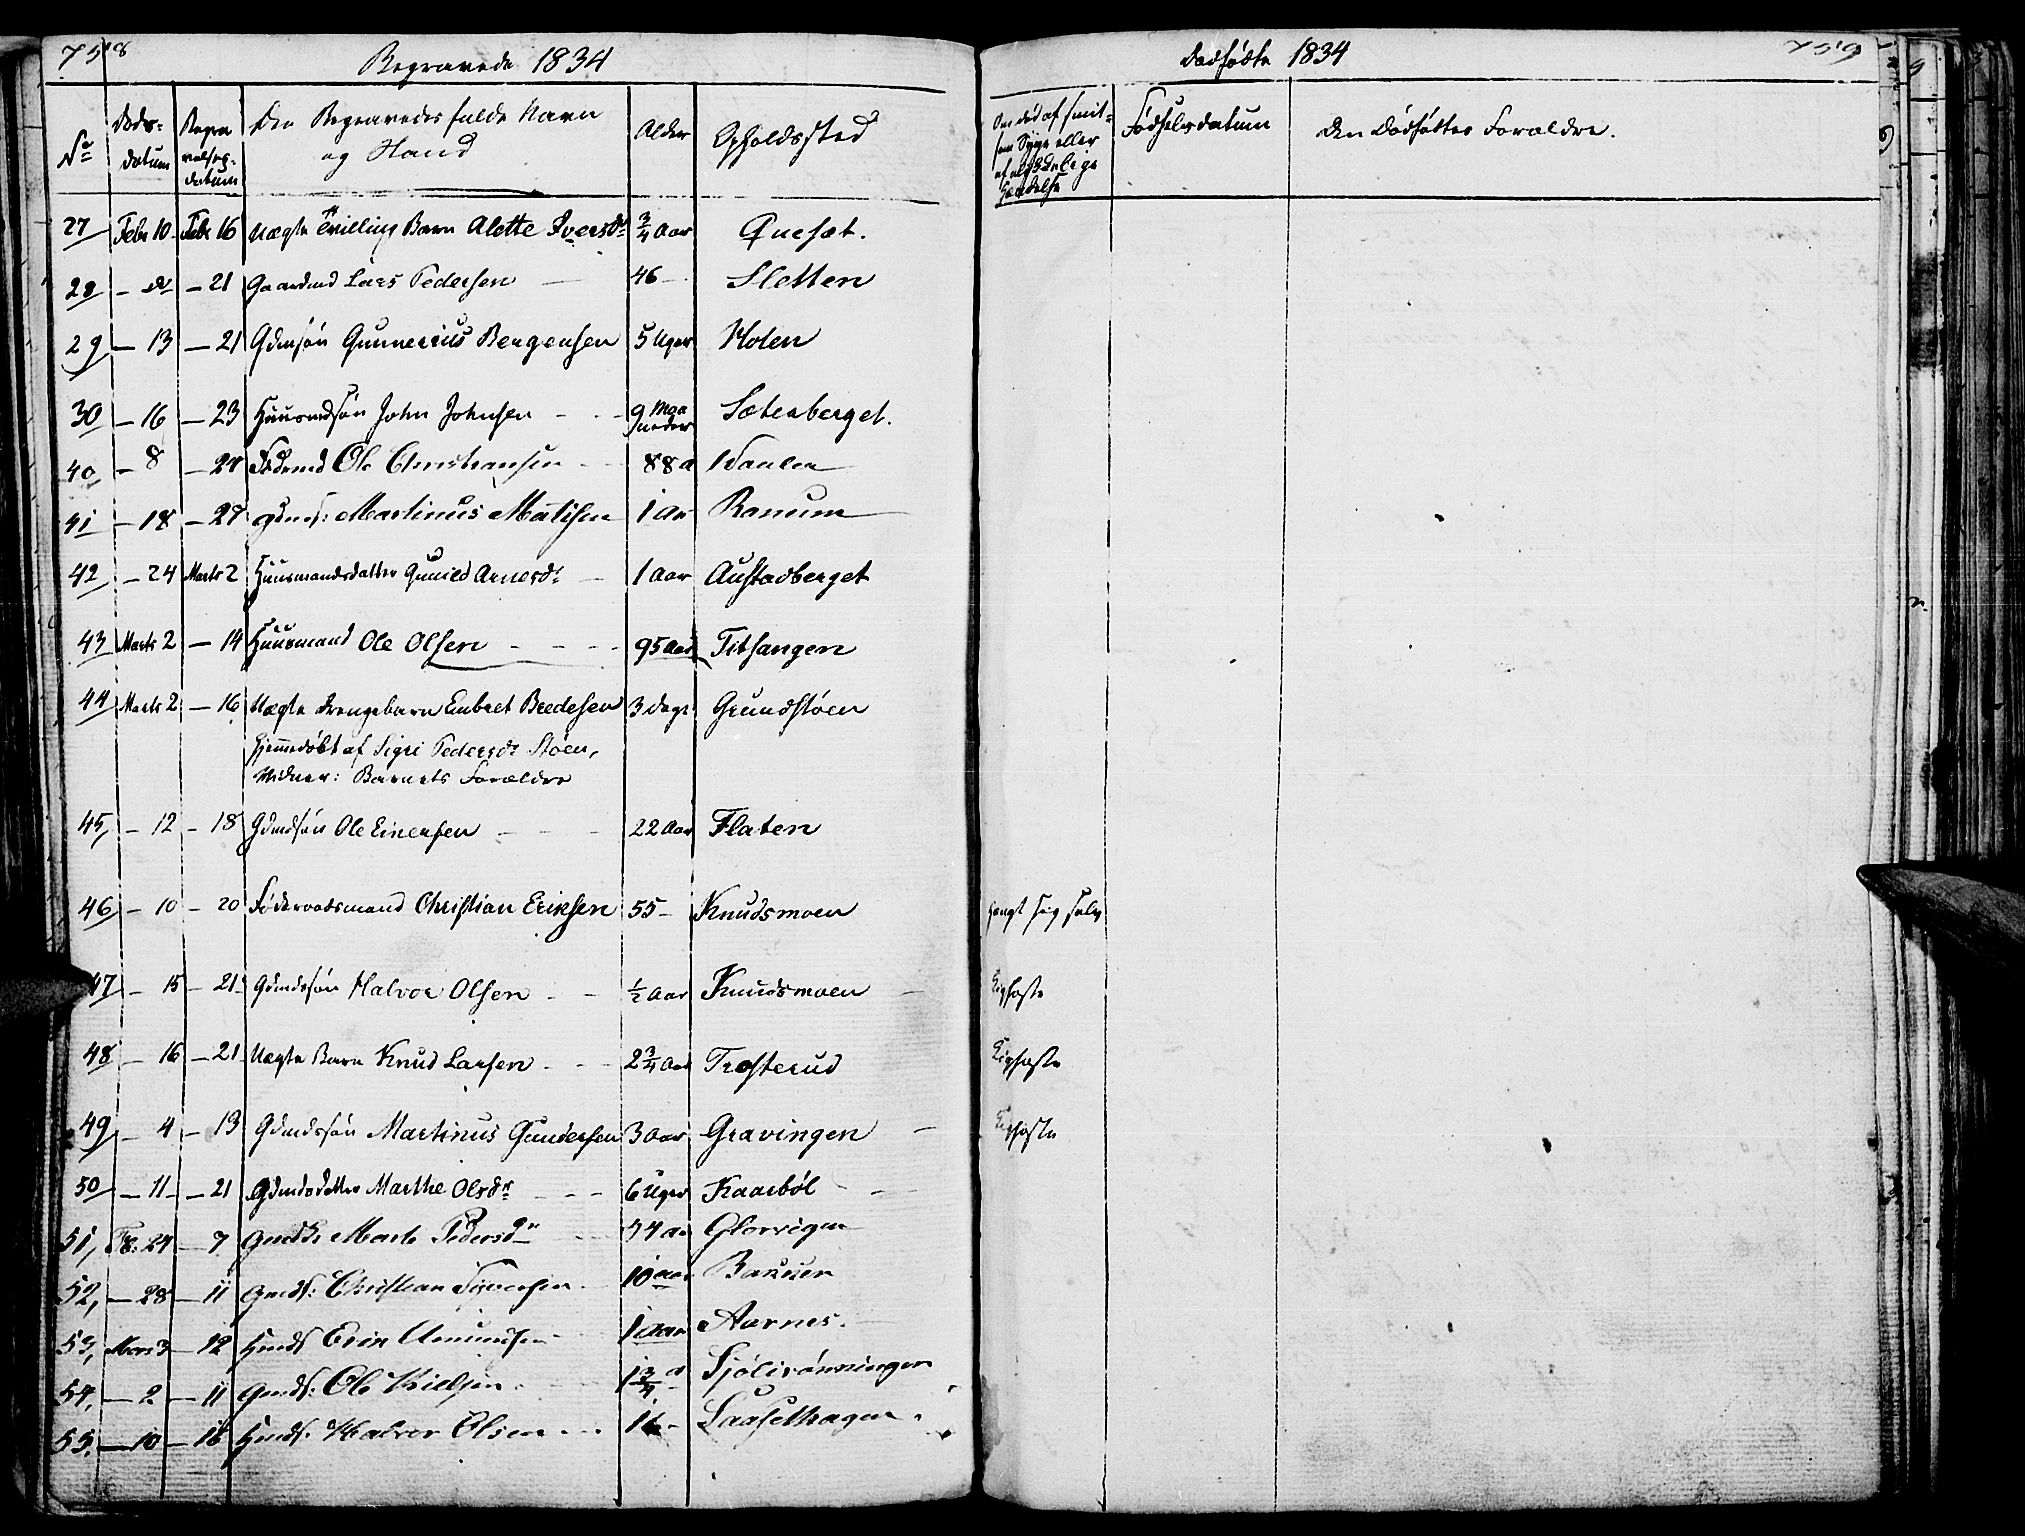 758
Begravede 1834
No
Døds-
datum
Begra
velses-
datum
Den Begravedes fulde Navn
og Stand
Alder
Opholdssted
27 Febr 10 Febr 16 Uægte Tvilling Barn Alette Iversdr 3/4 Aar Quesæt.
28 - do - 21 Gaardmd Lars Pedersen 46 - Sletten
29 - 13 - 21 Gdmsøn Gunnerius Bergersen 5 Uger Holen
30 - 16 - 23 Huusmdsøn John Johnsen - - 9 Maa
neder Sæterberget.
40 - 8 - 24 Ole Christiansen 88 a
41 - 18 - 27 gdmds: Martinus Mathisen 1 Aar Ranum
42 - 24 Marts 2 Huusmandsdatter Gunild Arnesdr 1 Aar Austadberget
43 Marts 2 - 14 Huusmand Ole Olsen - - - - 95 Aar Titsangen
44 Marts 2 - 16 Uægte Drengebarn Embret Bredesen 3 Dage Grundstøen
hjemmedøbt af Sigri Pedersdr Støen,
Vidner: Barnets Forældre
45, - 12 - 18 Gdmdsøn Ole Einersen - - - 22 Aar Flaten
46 - 10 - 20 Føderaadsmand Christian Eriksen 55 - Knudsmoen
47 - 15 - 21 Gdmdssøn Halvor Olsen - - 1/2 Aar Knudsmoen
48 - 16 - 21 Uægte Barn Knud Larsen - - - 2 3/4 Aar Trosterud
49 - 4 - 13 Gdmdssøn Martinus Gundersen 3 Aar Gravingen
50 - 11 - 21 Gdmdsdatter Marthe Olsdr - - - 6 Uger Kaarbøl
51, Fb: 24 - 7 Marte Pedersdr 54 aa Glorvigen
52, - 28 - 11 Gmds: Christian 10 aar Bakken
53, Mars 3 - 12 Hmds Erik Amundsen 1 Aar Aarnes.
54, - 2 - 11 Gmds: Ole Kielsen 1 3/4 a Sjølirønningen
55. - 10 - 16 Hmds: Halvor Olsen - - - Saasethagen
Dødfødte 1834
759
Om død af smit-
som Syge eller
af
Hændelse
Fødselsdatum
Den Dødfødtes Forældre.
hengt sig selv
Kighoste
Kighoste
Kighoste